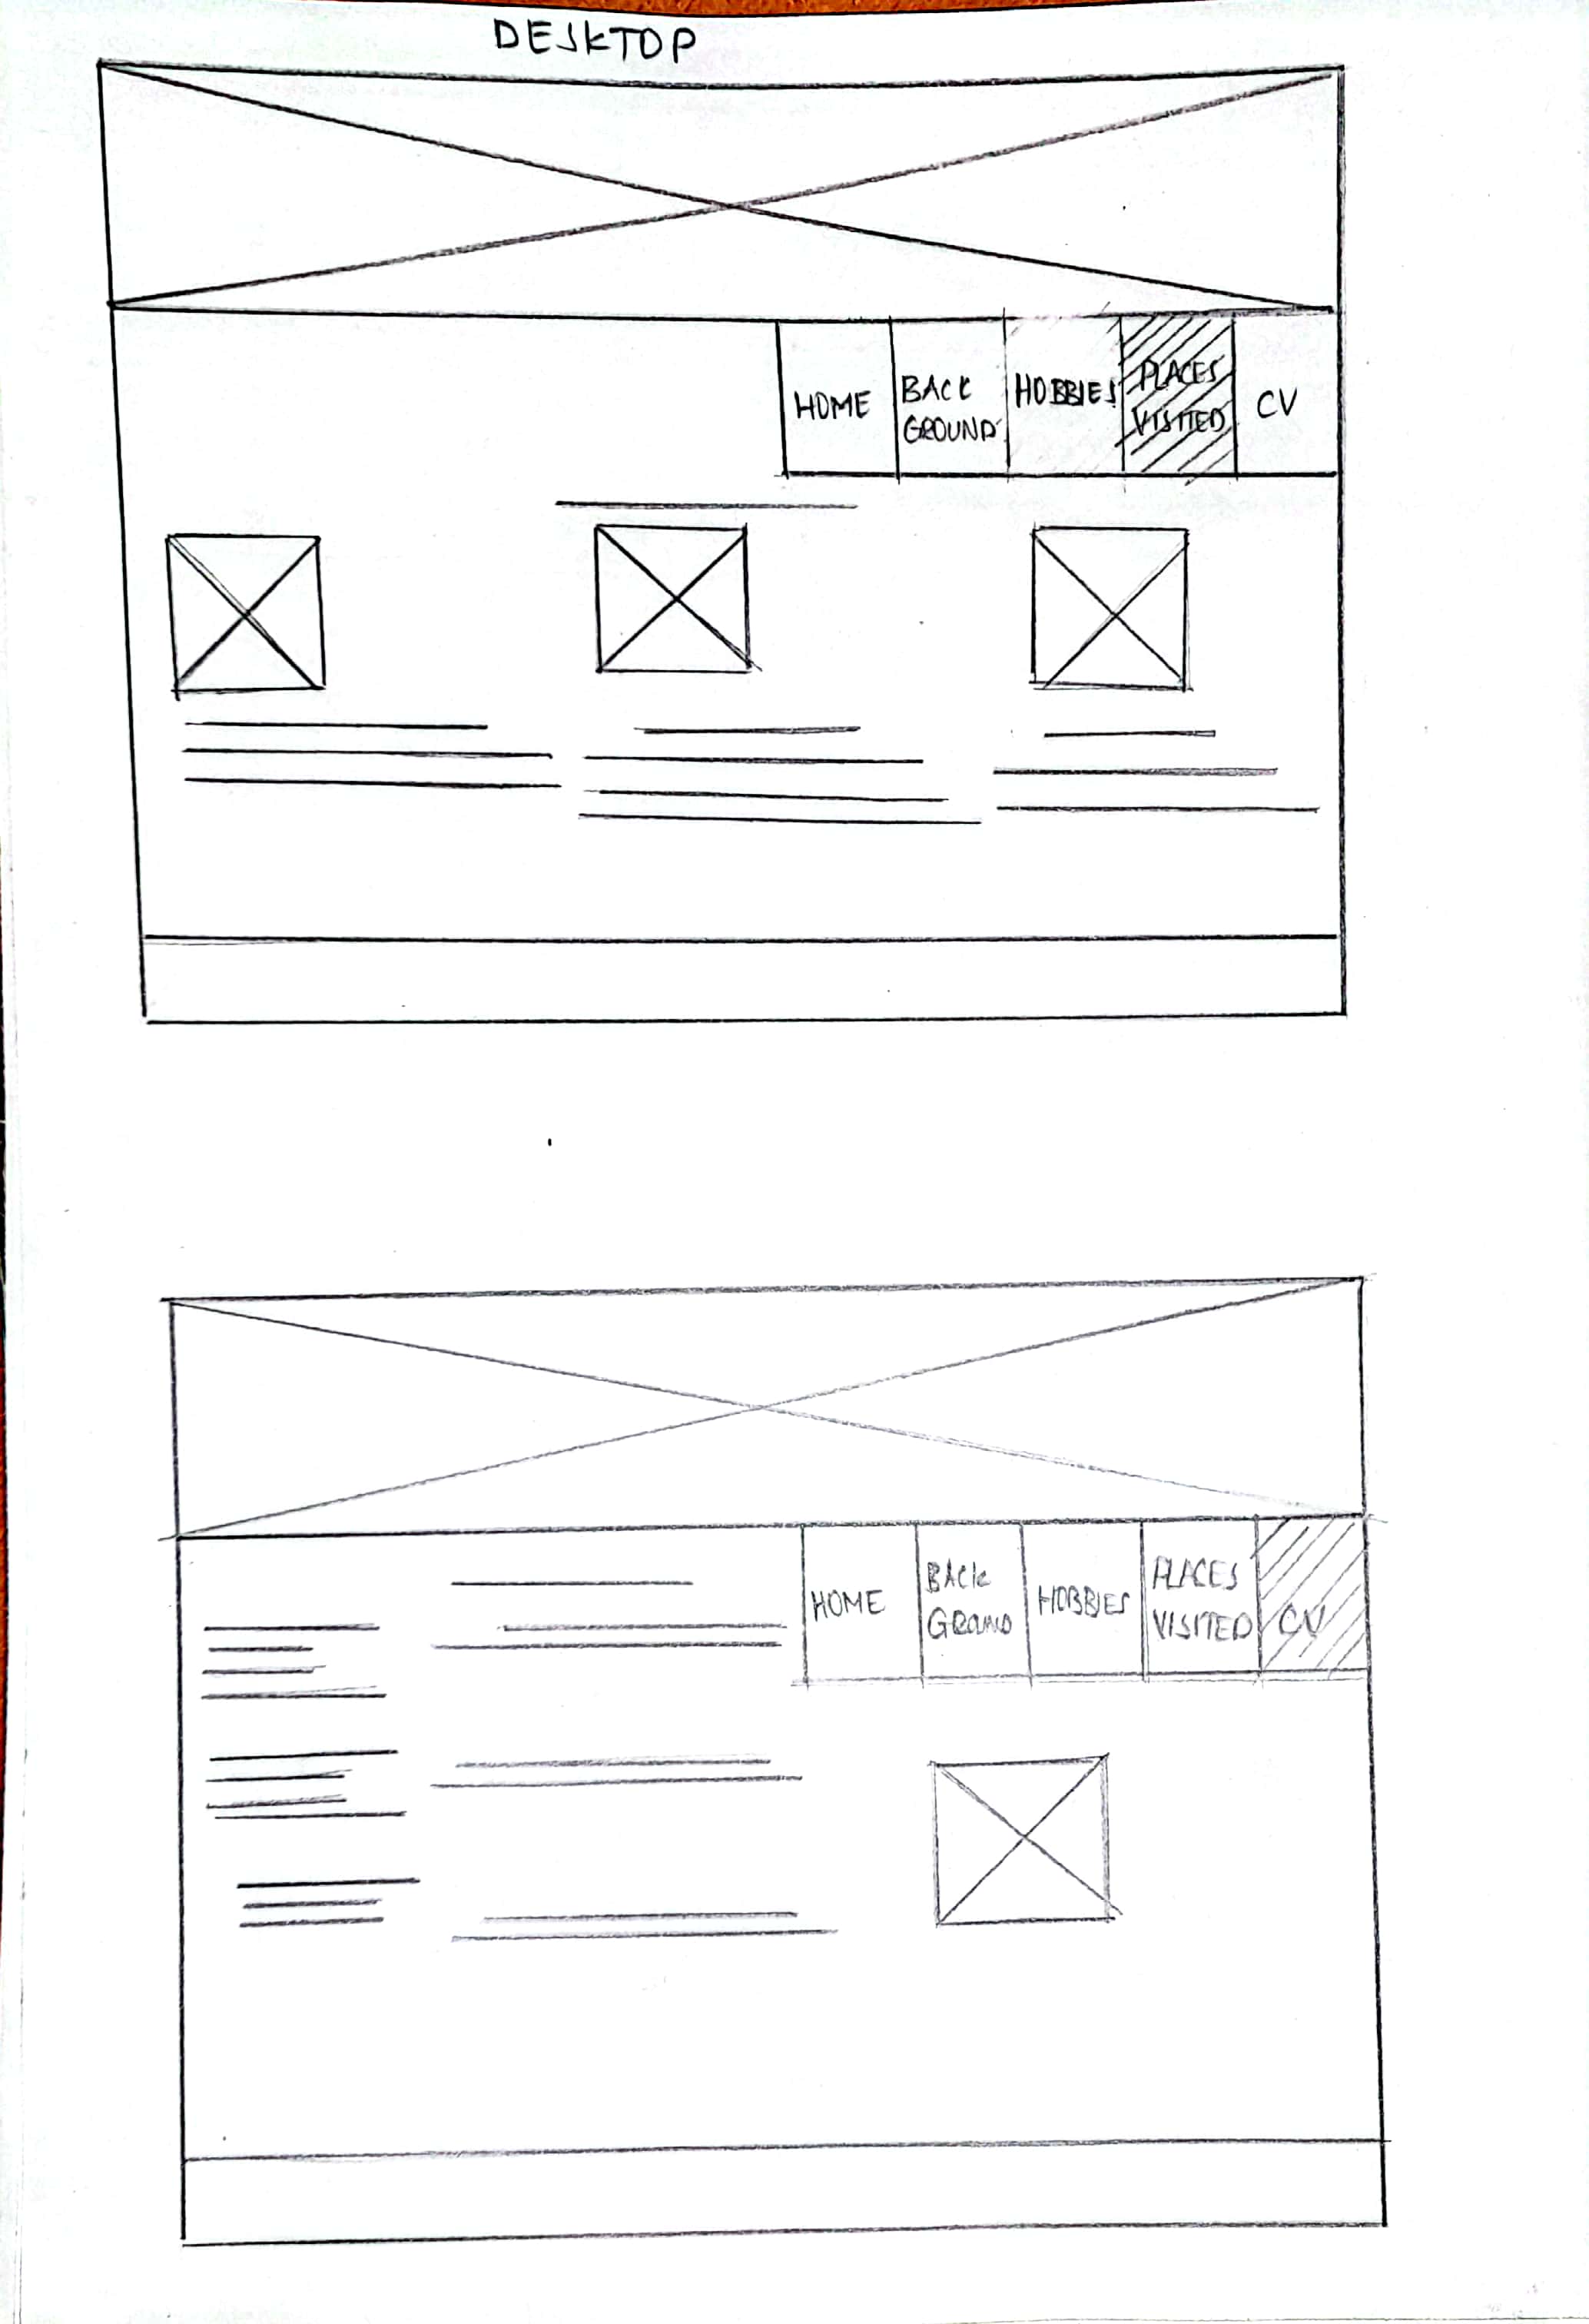 DESKTOP
HOME
BACK
GROUND
HOBBIES
PLACES
VISITED
CV
HOME
BACK
GROUND
HOBBIES
PLACES
VISITED
CV